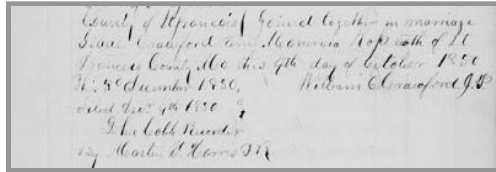 County of St Francois } Joined together in marriage
Isaac Crawford and Manervia both of St
Francois County Mo this 9th day of October 1850
December 1850, William C Crawford J.P
Filed Dec 9th 1850
Cobb Recorder
By Martin S. Harris D.R